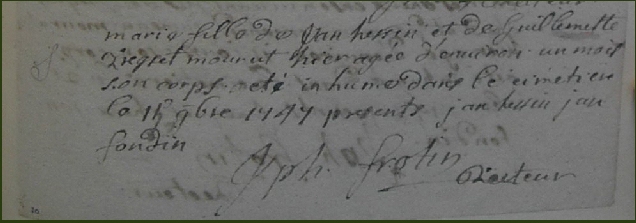 marie fille de Jan hessin et de Guillemette
Riquel mourut hier agée d'environ un mois
son corps a eté inhumé dans le cimetiere
le 15e 9bre 1747 presents jan hessin jan
fondin
Jph. frotin Recteur